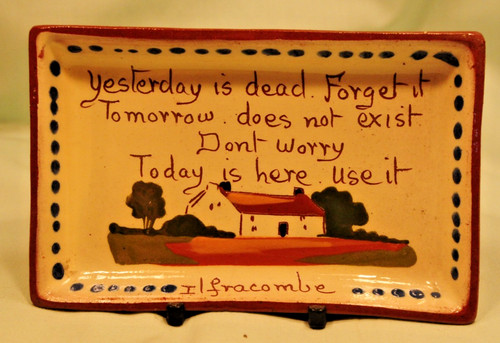 Yesterday is dead. Forget it
Tomorrow. does not exist
Dont worry
Today is here. use it
Ilfracombe